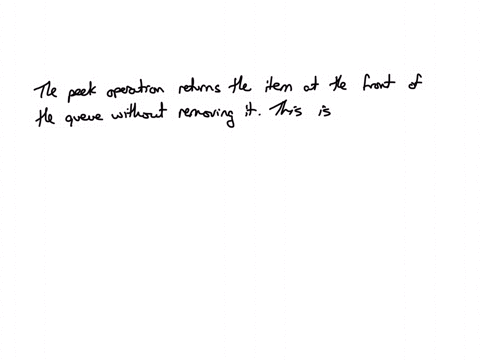 The peek operation returns the item at the front of
the queue without removing it. This is